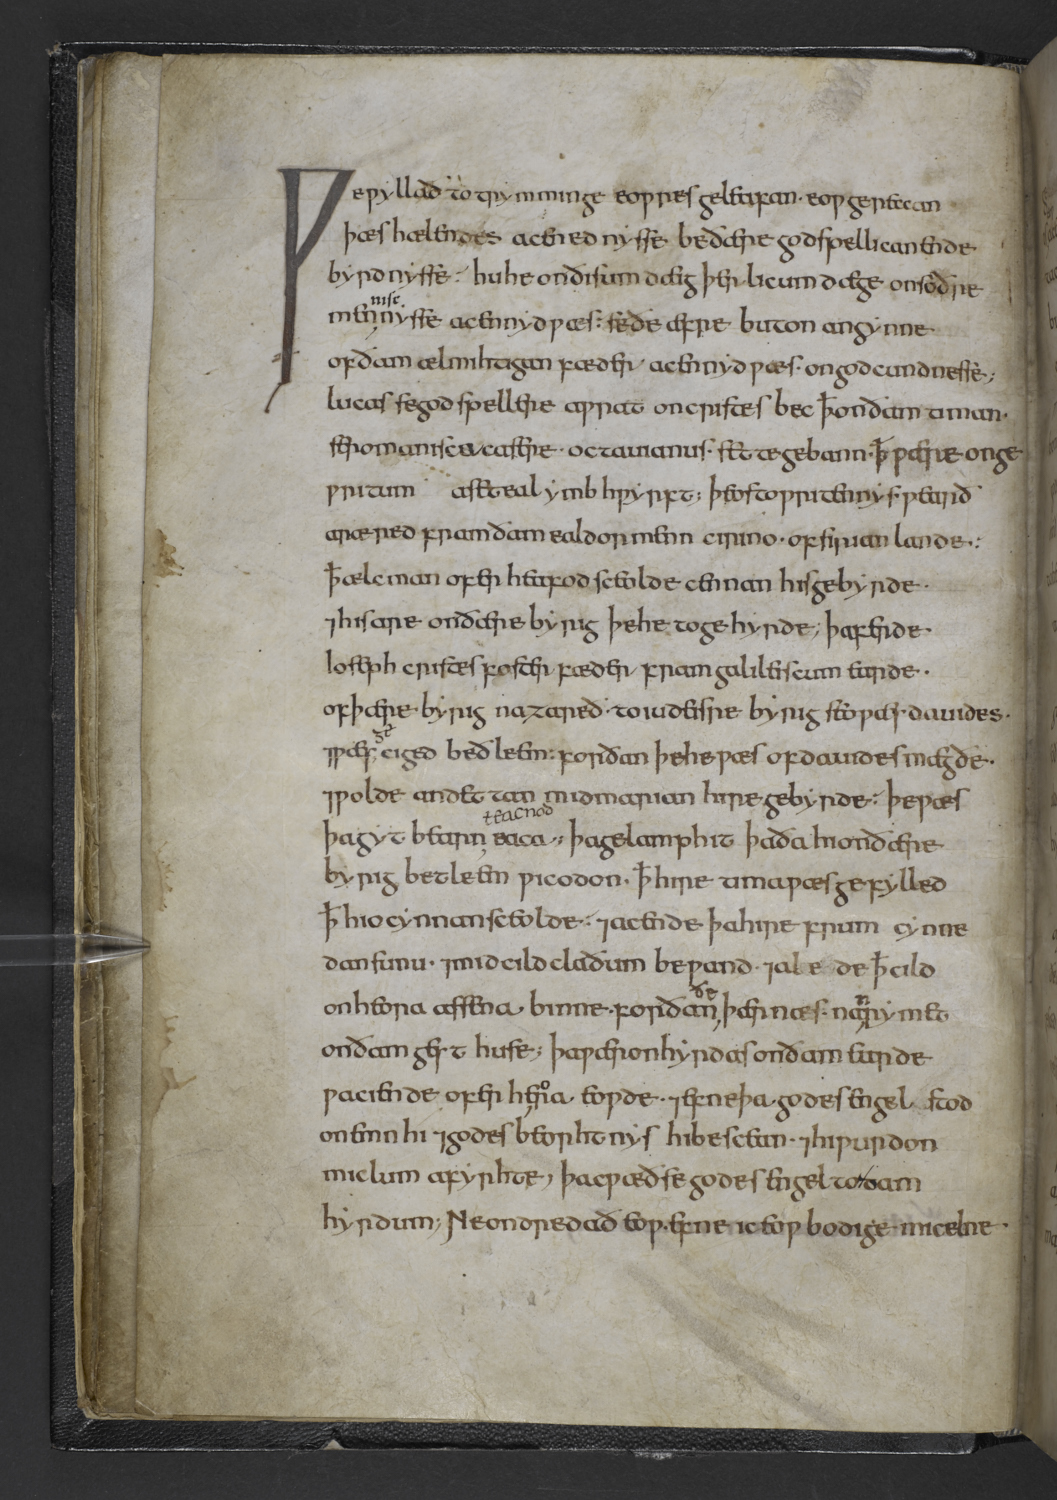 Ƿe ƿyllað to trymminge eoƿres geleafan · eoƿ gereccan
þæs hælendes acennednysse be ðære godspellican ende
byrdnysse · hu he on ðisum dæig þerlicum dæge on soðre
menniscnysse acennyd ƿæs · seðe æfre buton angynne
of ðam ælmihtigan fæder acennyd ƿæs · on godcundnesse;
lucas se godspellere aƿrat on cristes bec þ̄ on ðam timan ·
se romanisca casere · octauianus · sette gebann · þ̄ ƿære on ge
ƿritum asett eal ymbhƿyrft; þeos tofritennys ƿearð
aræred fram ðam ealdormenn cirino · of sirian lande ·:
þ̄ ælc man ofer heafod sceolde cennan his gebyrde ·
⁊ his are on ðære byrig þe he to gehyrde; þa ferde
Ioseph cristes foster fæder fram galileiscum earde ·
of þære byrig nazareð · to iudeisre byrig seo ƿæs dauides ·
⁊ ƿæs geciged beðleem: forðan þe he ƿæs of dauides mægðe ·
⁊ ƿolde andettan mid marian hire gebyrde · þe ƿæs
þa gyt bearn eacnod eaca; þa gelamp hit þaða hi on ðære
byrig betleem ƿicodon · þ̄ hire tima ƿæs gefylled
þ̄ hio cynnan sceolde · ⁊ acende þa hire frum cynne
dan sunu · ⁊ mid cildclaðum beƿand · ⁊ al e de þ̄ cild
on heora assena binne · forðan ðe þær næs · nan rymet
on ðam gest huse; þa ƿæron hyrdas on ðam earde
ƿaciende ofer heora eoƿde · ⁊ efne þa godes engel stod
on emn hi ⁊ godes beorhtnys hi bescean · ⁊ hi ƿurdon
miclum afyrhte; þa cƿæð se godes engel to ðam
hyrdum; Ne ondredað eoƿ · efne ic eoƿ bodige micelne ·